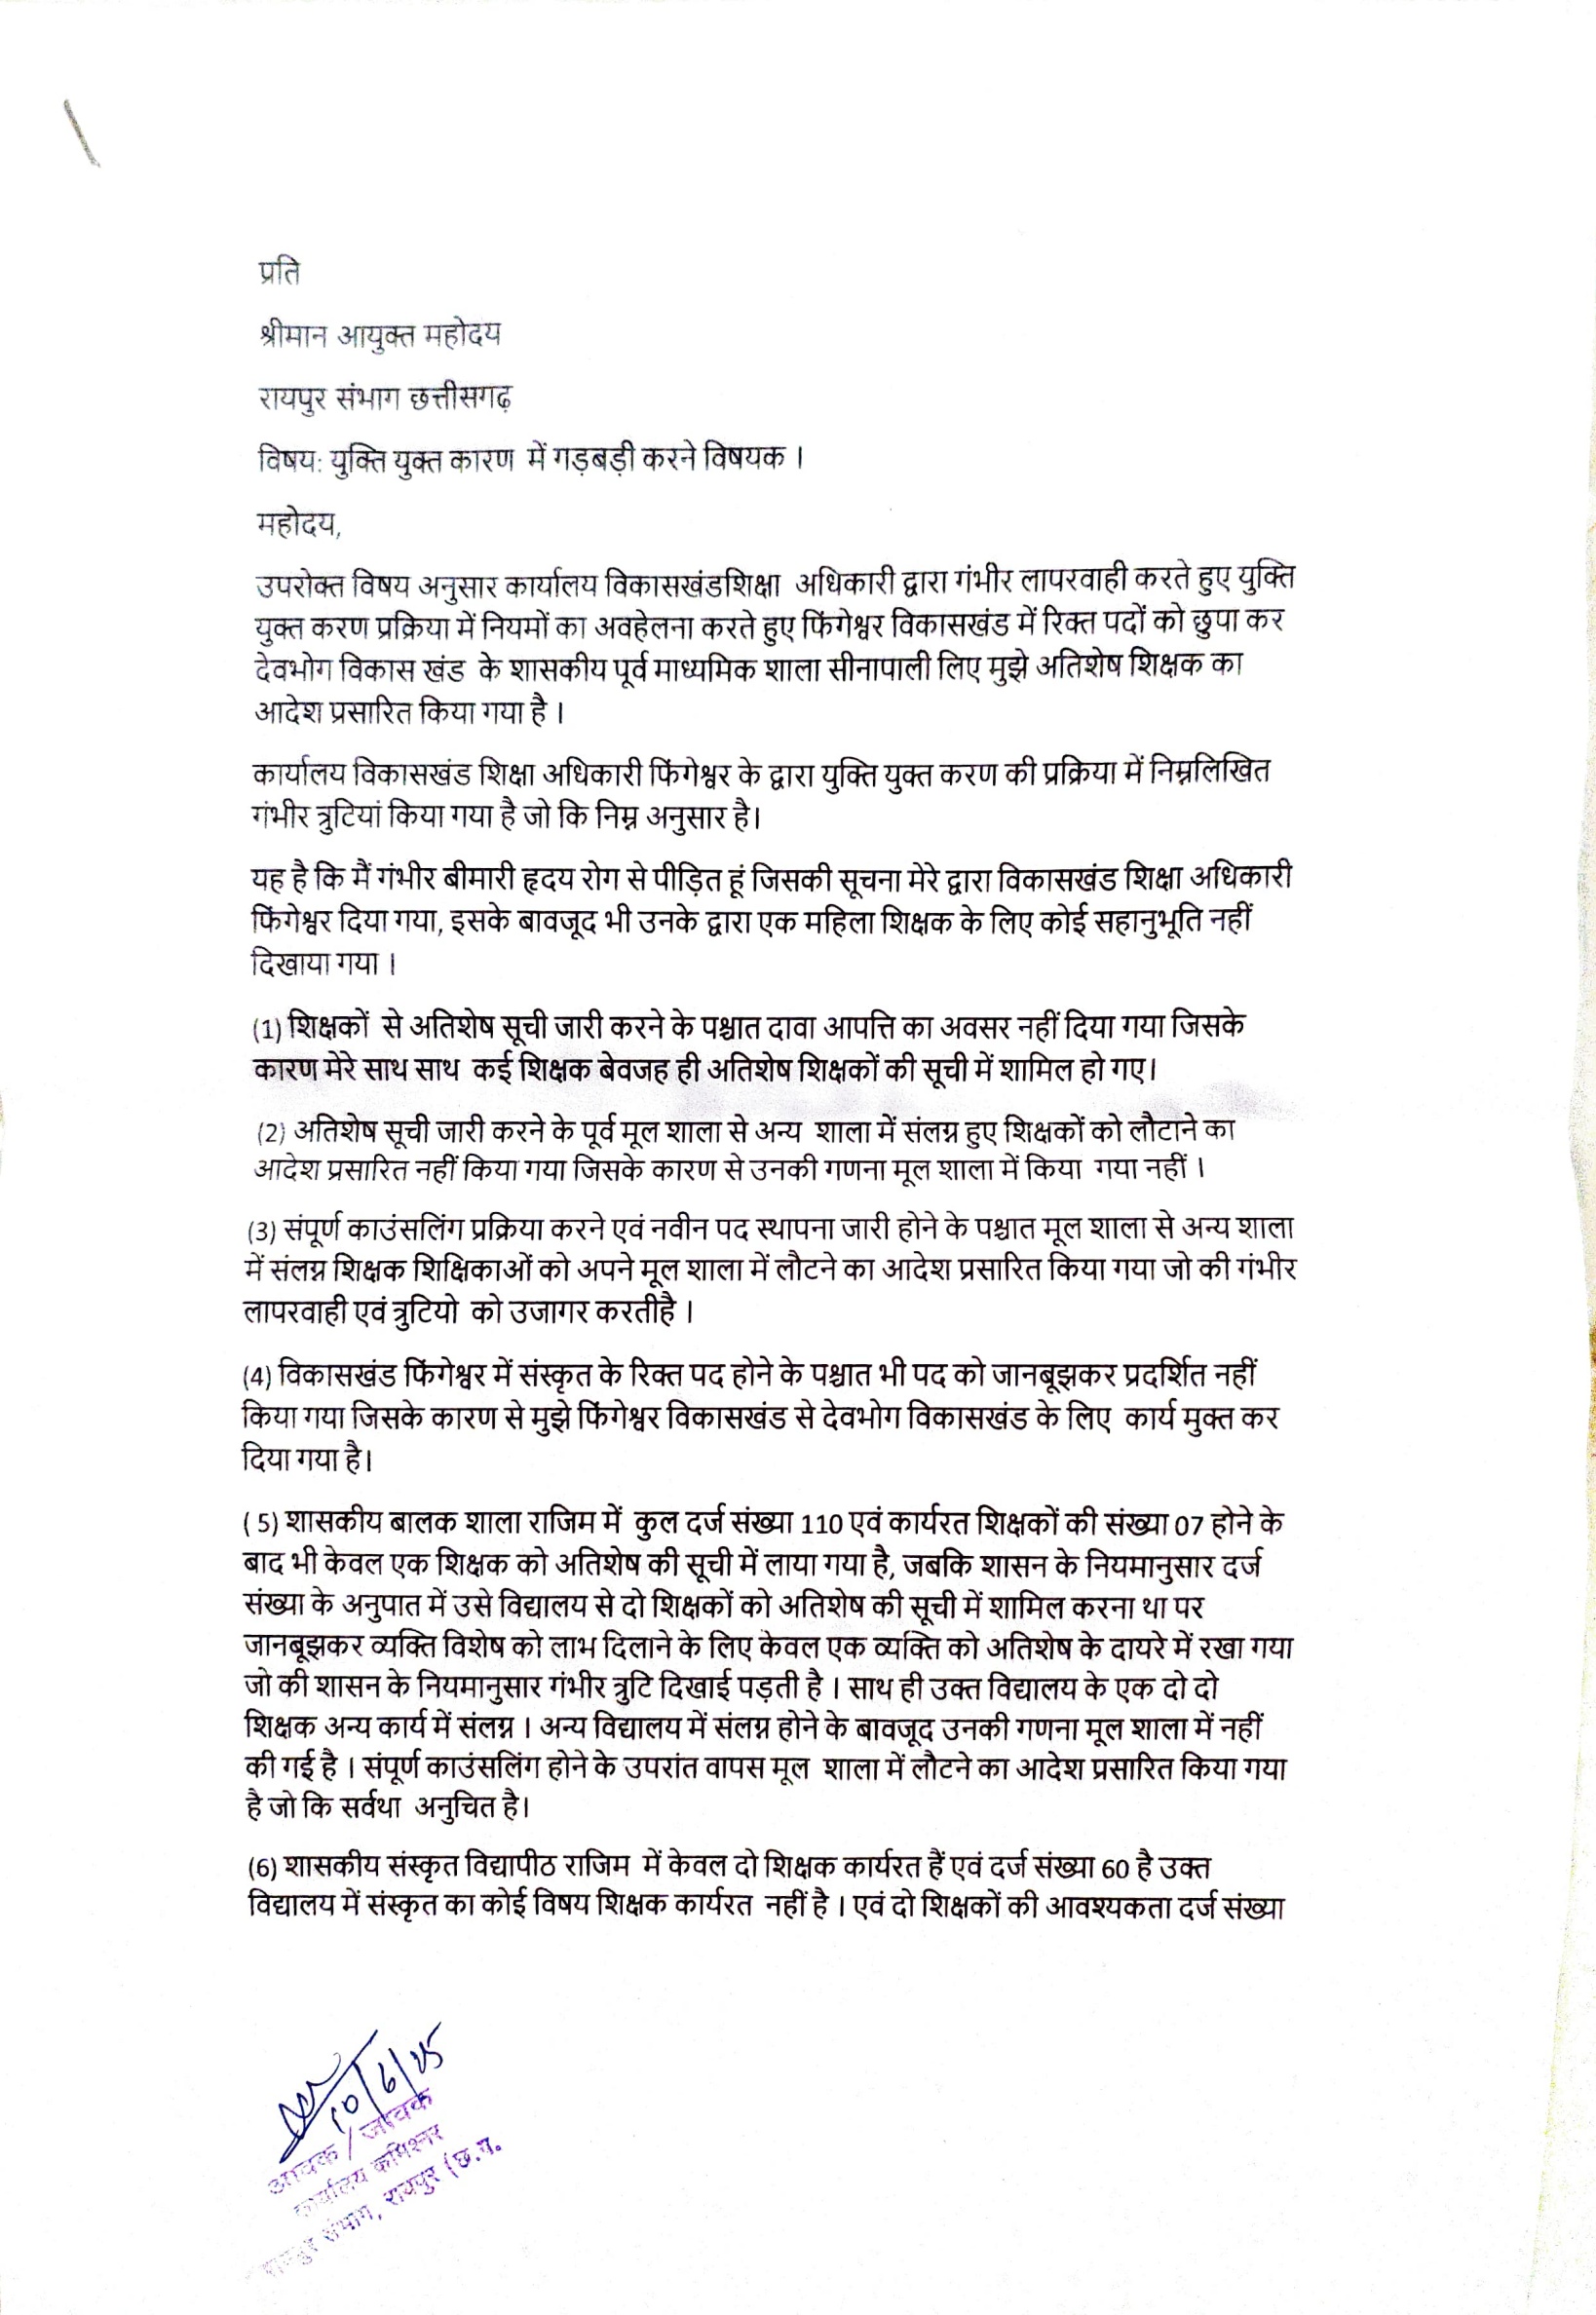 प्रति
श्रीमान आयुक्त महोदय
रायपुर संभाग छत्तीसगढ़
विषय: युक्ति युक्त कारण में गड़बड़ी करने विषयक ।
महोदय,
उपरोक्त विषय अनुसार कार्यालय विकासखंडशिक्षा अधिकारी द्वारा गंभीर लापरवाही करते हुए युक्ति
युक्त करण प्रक्रिया में नियमों का अवहेलना करते हुए फिंगेश्वर विकासखंड में रिक्त पदों को छुपा कर
देवभोग विकास खंड के शासकीय पूर्व माध्यमिक शाला सीनापाली लिए मुझे अतिशेष शिक्षक का
आदेश प्रसारित किया गया है ।
कार्यालय विकासखंड शिक्षा अधिकारी फिंगेश्वर के द्वारा युक्ति युक्त करण की प्रक्रिया में निम्नलिखित
गंभीर त्रुटियां किया गया है जो कि निम्न अनुसार है।
यह है कि मैं गंभीर बीमारी हृदय रोग से पीड़ित हूं जिसकी सूचना मेरे द्वारा विकासखंड शिक्षा अधिकारी
फिंगेश्वर दिया गया, इसके बावजूद भी उनके द्वारा एक महिला शिक्षक के लिए कोई सहानुभूति नहीं
दिखाया गया ।
(1) शिक्षकों से अतिशेष सूची जारी करने के पश्चात दावा आपत्ति का अवसर नहीं दिया गया जिसके
कारण मेरे साथ साथ कई शिक्षक बेवजह ही अतिशेष शिक्षकों की सूची में शामिल हो गए।
(2) अतिशेष सूची जारी करने के पूर्व मूल शाला से अन्य शाला में संलग्न हुए शिक्षकों को लौटाने का
आदेश प्रसारित नहीं किया गया जिसके कारण से उनकी गणना मूल शाला में किया गया नहीं ।
(3) संपूर्ण काउंसलिंग प्रक्रिया करने एवं नवीन पद स्थापना जारी होने के पश्चात मूल शाला से अन्य शाला
में संलग्न शिक्षक शिक्षिकाओं को अपने मूल शाला में लौटने का आदेश प्रसारित किया गया जो की गंभीर
लापरवाही एवं त्रुटियो को उजागर करतीहै ।
(4) विकासखंड फिंगेश्वर में संस्कृत के रिक्त पद होने के पश्चात भी पद को जानबूझकर प्रदर्शित नहीं
किया गया जिसके कारण से मुझे फिंगेश्वर विकासखंड से देवभोग विकासखंड के लिए कार्य मुक्त कर
दिया गया है।
( 5) शासकीय बालक शाला राजिम में कुल दर्ज संख्या 110 एवं कार्यरत शिक्षकों की संख्या 07 होने के
बाद भी केवल एक शिक्षक को अतिशेष की सूची में लाया गया है, जबकि शासन के नियमानुसार दर्ज
संख्या के अनुपात में उसे विद्यालय से दो शिक्षकों को अतिशेष की सूची में शामिल करना था पर
जानबूझकर व्यक्ति विशेष को लाभ दिलाने के लिए केवल एक व्यक्ति को अतिशेष के दायरे में रखा गया
जो की शासन के नियमानुसार गंभीर त्रुटि दिखाई पड़ती है । साथ ही उक्त विद्यालय के एक दो दो
शिक्षक अन्य कार्य में संलग्न । अन्य विद्यालय में संलग्न होने के बावजूद उनकी गणना मूल शाला में नहीं
की गई है । संपूर्ण काउंसलिंग होने के उपरांत वापस मूल शाला में लौटने का आदेश प्रसारित किया गया
है जो कि सर्वथा अनुचित है।
(6) शासकीय संस्कृत विद्यापीठ राजिम में केवल दो शिक्षक कार्यरत हैं एवं दर्ज संख्या 60 है उक्त
विद्यालय में संस्कृत का कोई विषय शिक्षक कार्यरत नहीं है । एवं दो शिक्षकों की आवश्यकता दर्ज संख्या
10/6/25
आवक / जावक
कार्यालय कमिश्नर
रायपुर संभाग, रायपुर (छ.ग.